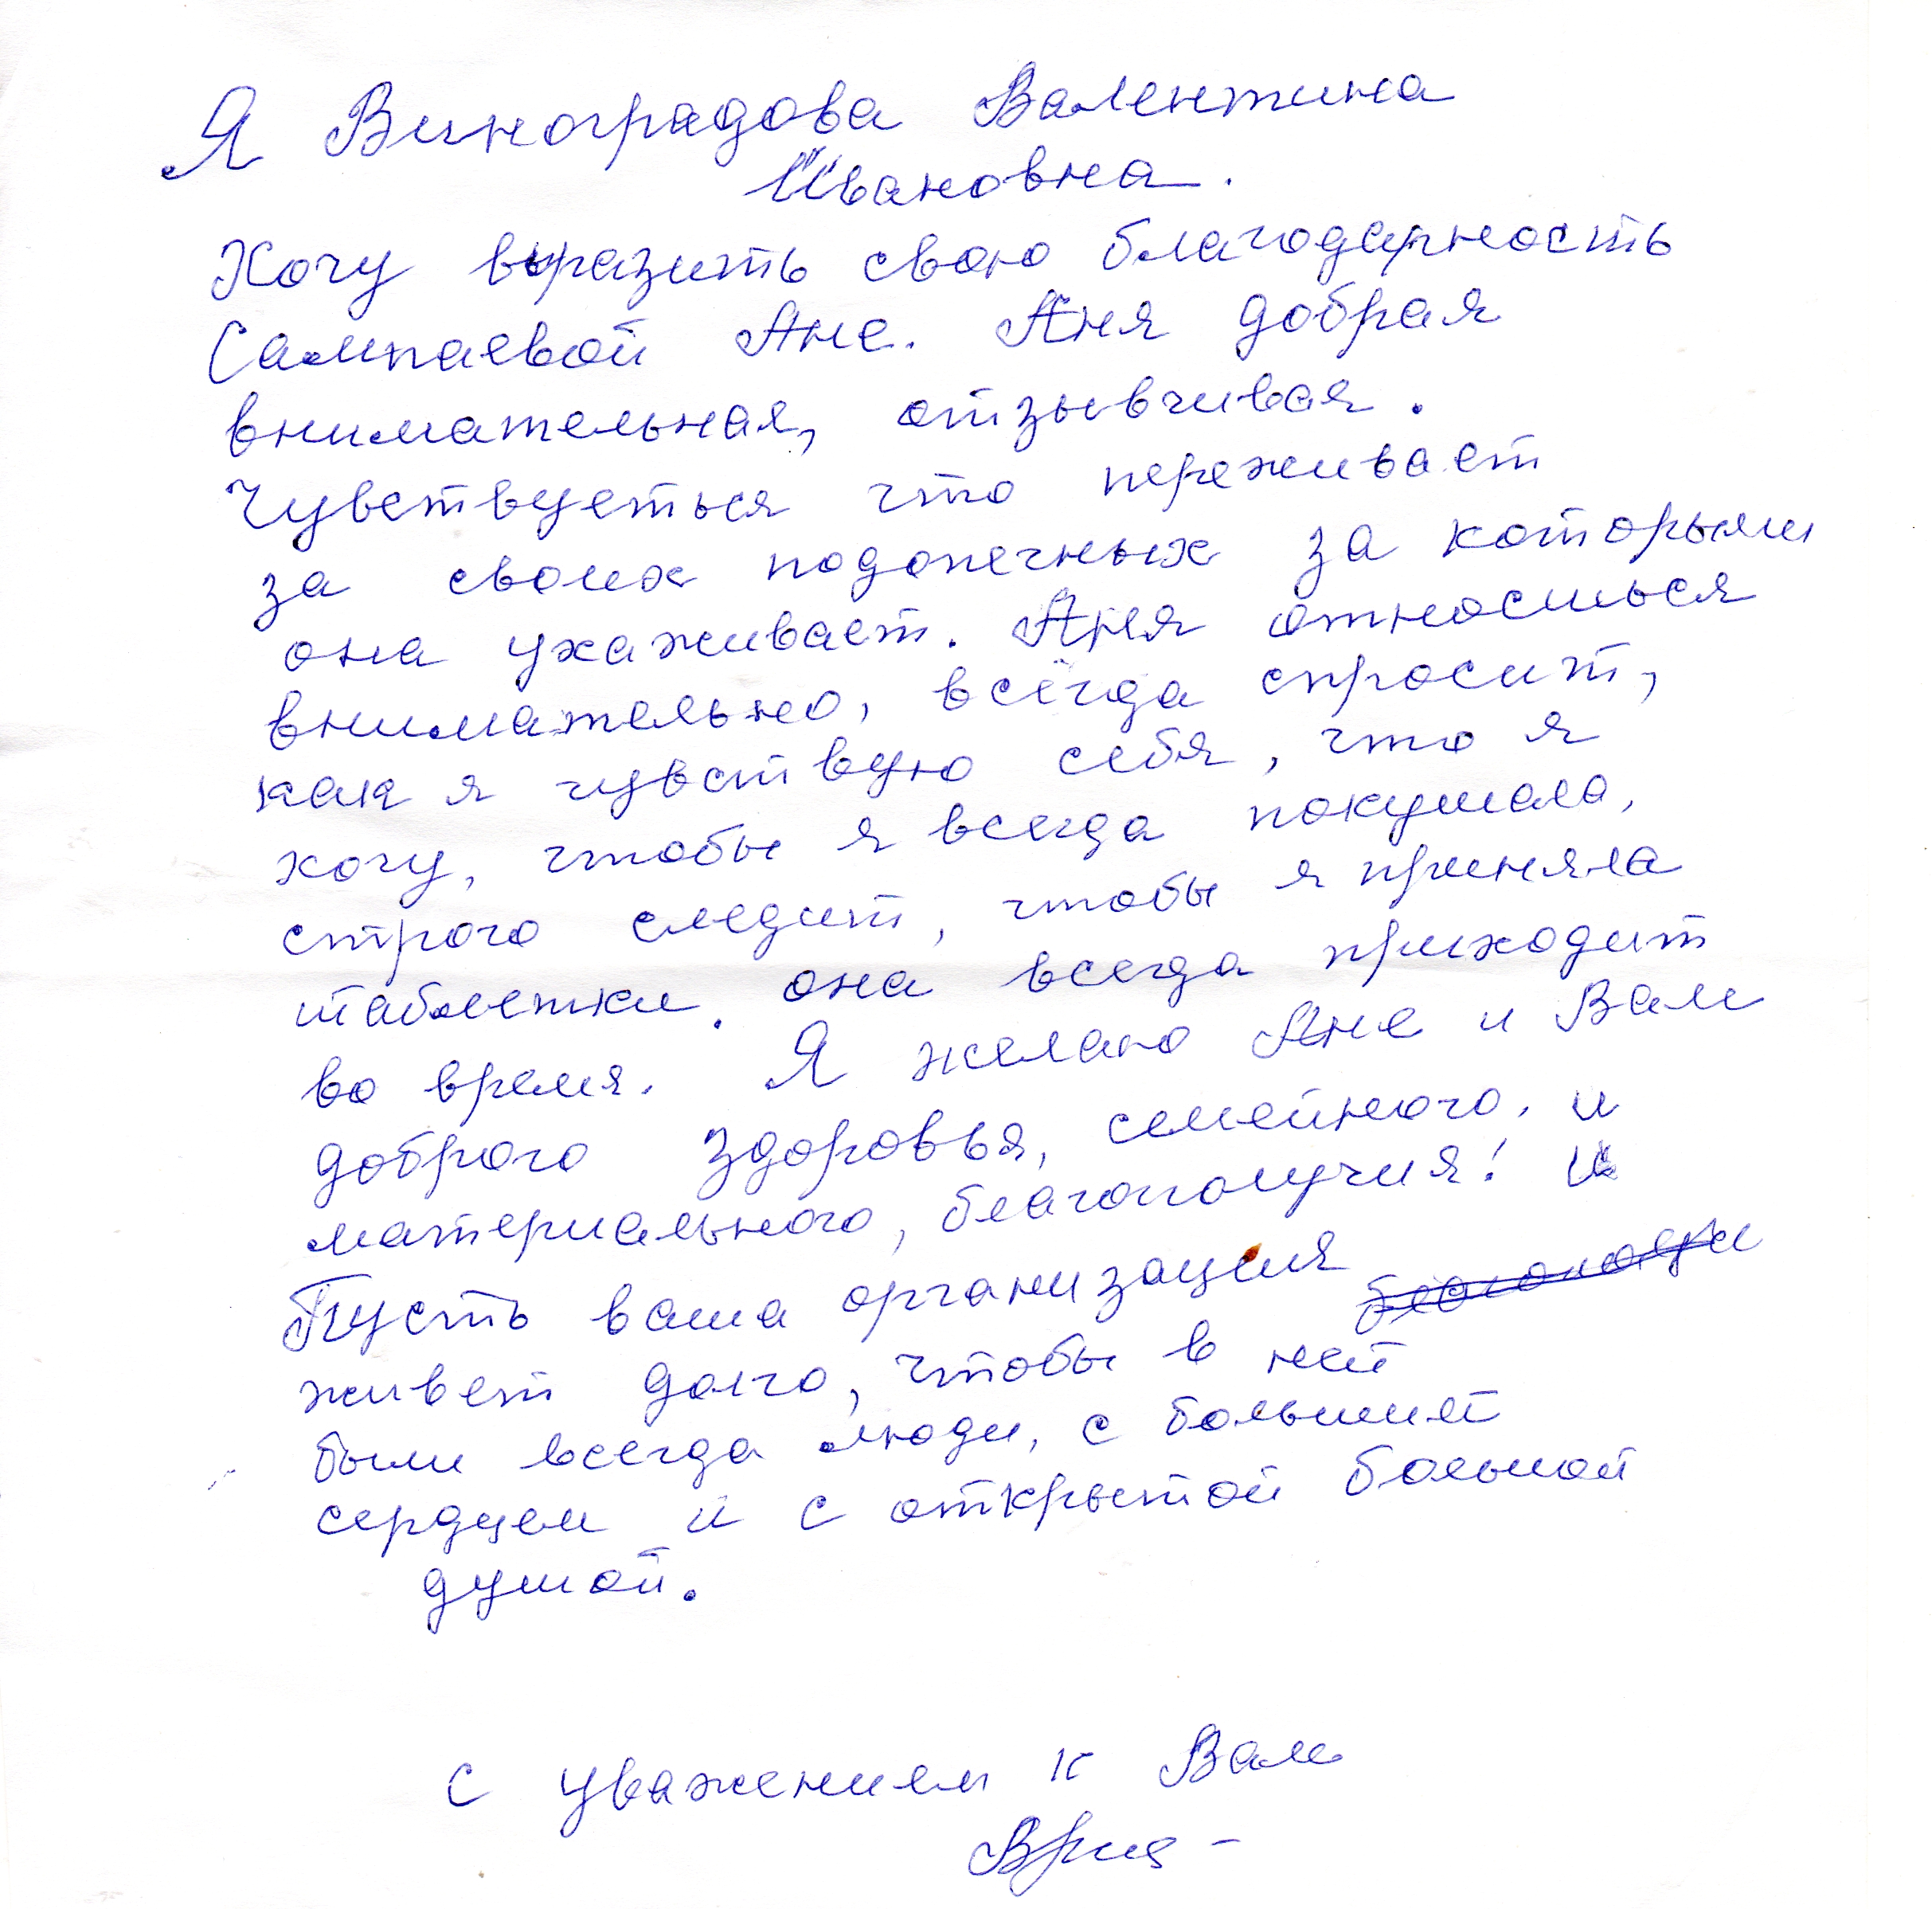 Я Виноградова Валентина
Ивановна.
Хочу выразить свою благодарность
Сампаевой Ане. Аня добрая
внимательная, отзывчивая.
Чувствуеться что переживает
за своих подопечных за которыми
она ухаживает. Аня относиться
внимательно, всегда спросит,
как я чувствую себя, что я
хочу, чтобы я всегда покушала,
строго следит, чтобы я приняла
таблетки. она всегда приходит
во время. Я желаю Ане и Вам
доброго здоровья, семейного, и
материального, благополучия! и
Пусть ваша организация
живет долго, чтобы в ней
были всегда люди, с большим
сердцем и с открытой большой
душой.
с уважением к Вам